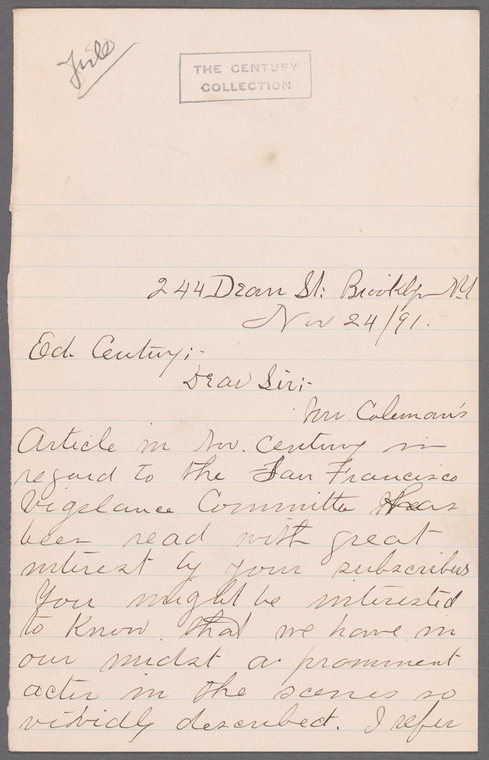 File
THE CENTURY
COLLECTION
244 Dean St: Brooklyn NY
Nov 24/91.
Ed. Century;-
Dear Sir;-
Mr. Coleman's
Article in Nov. Century in
regard to the San Francisco
Vigelance Committe has
been read with great
interest by your subscribers
You might be interested
to know that we have in
our midst a prominent
acter in the scenes so
vividly described. I refer